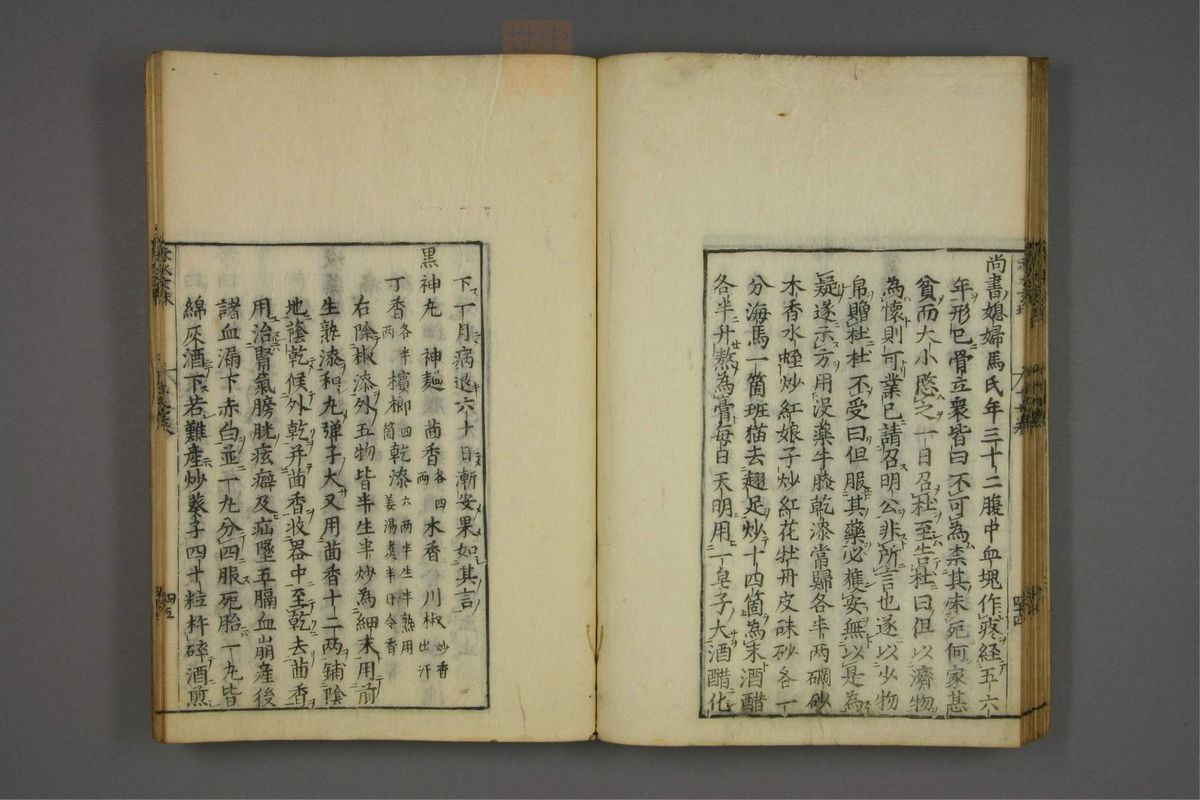 尚書媳婦馬氏年三十二腹中血塊作疼経五六
年形已骨立衆皆曰不可為柰其未死何家甚
貧而大小愍之一日召杜至告杜曰但以濟物
為懷則可業已請召明公非所言也遂以少物
帛贈杜杜不受曰但服其藥必獲安無以是為
疑遂示方用没藥牛膝乾漆當歸各半两碙砂
木香水蛭炒紅娘子炒紅花牡丹皮硃砂各一
分海馬一箇班猫去翅足炒十四箇為末酒醋
各半升熬為膏毎日天明用一皂子大酒醋化
四十四
下一月病退六十日漸安果如其言
黒神丸 神麯 茴香各四两 木香 川椒炒香出汗
丁香各半两 檳榔四箇 乾漆六两半生半熟用姜湯煑半日令香
右除椒漆外五物皆半生半炒為細末用前
生熟漆和丸弾子大又用茴香十二两鋪陰
地蔭乾候外乾并茴香收器中至乾去茴香
用治腎氣膀胱痃癖及疝墜五膈血崩産後
諸血漏下赤白並一丸分四服死胎一丸皆
綿灰酒下若難産炒葵子四十粒杵碎酒煎
四十五